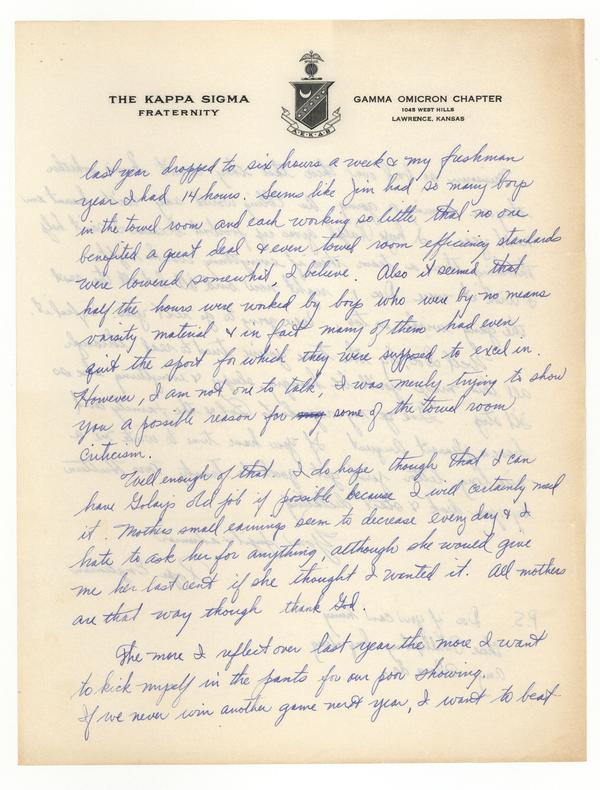 THE KAPPA SIGMA
FRATERNITY
GAMMA OMICRON CHAPTER
1045 WEST HILLS
LAWRENCE, KANSAS
last year dropped to six hours a week & my freshman
year I had 14 hours. Seems like Jim had so many boys
in the towel room and each working so little that no one
benefited a great deal & even towel room efficiency standards
were lowered somewhat, I believe. Also it seemed that
half the hours were worked by boys who were by no means
varsity material & in fact many of them had even
quit the sport for which they were supposed to excel in.
However, I am not one to talk, I was merely trying to show
you a possible reason for some of the towel room
criticism.
Well enough of that I do hope though that I can
have Golays old job if possible because I will certainly need
it. Mothers small earnings seem to decrease everyday & I
hate to ask her for anything, although she would give
me her last cent if she thought I wanted it. All mothers
are that way though thank God.
The more I reflect over last year the more I want
to kick myself in the pants for our poor showing.
If we never win another game next year, I want to beat